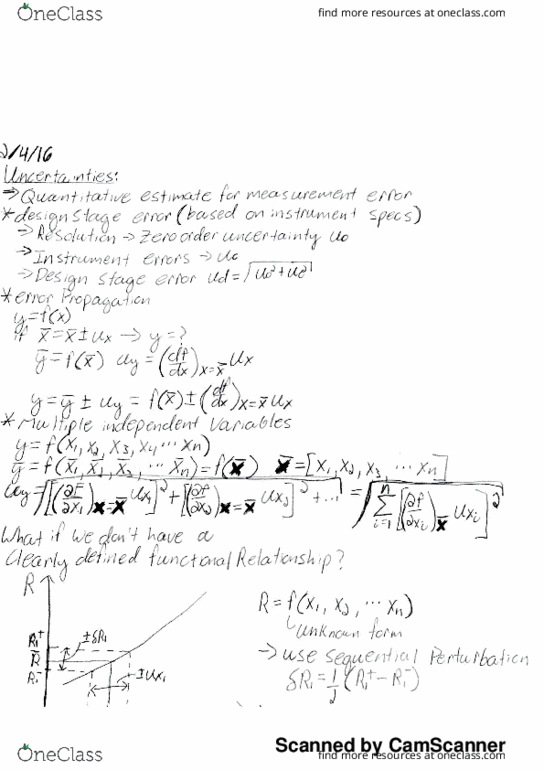 OneClass find more resources at oneclass.com
2/4/16
Uncertainties:
⇒ Quantitative estimate for measurement error
* design stage error (based on instrument specs)
→ Resolution → Zero order uncertainty u₀
→ Instrument errors → uc
→ Design stage error ud = √(u₀² + uc²)
* error Propagation
y = f(x)
if x = x̄ ± ux → y = ?
ȳ = f(x̄) uy = (df/dx)x=x̄ ux
y = ȳ ± uy = f(x̄) ± (df/dx)x=x̄ ux
* Multiple independent Variables
y = f(x₁, x₂, x₃, x₄ ... xn)
ȳ = f(x̄₁, x̄₂, x̄₃, ... x̄n) = f(x̄) x̄ = [x₁, x₂, x₃, ... xn]
uy = √([(∂f/∂x₁)x=x̄ ux₁]² + [(∂f/∂x₂)x=x̄ ux₂]² + ...) = √(Σ i=1 n [(∂f/∂xi)x̄ uxi]²)
What if we don't have a
Clearly defined functional Relationship?
R
R = f(x₁, x₂, ... xn)
unknown form
→ use sequential Perturbation
δR₁ = 1/2 (R₁⁺ - R₁⁻)
R₁⁺
±δR₁
R̄
R₁⁻
±ux₁
Scanned by CamScanner
OneClass find more resources at oneclass.com